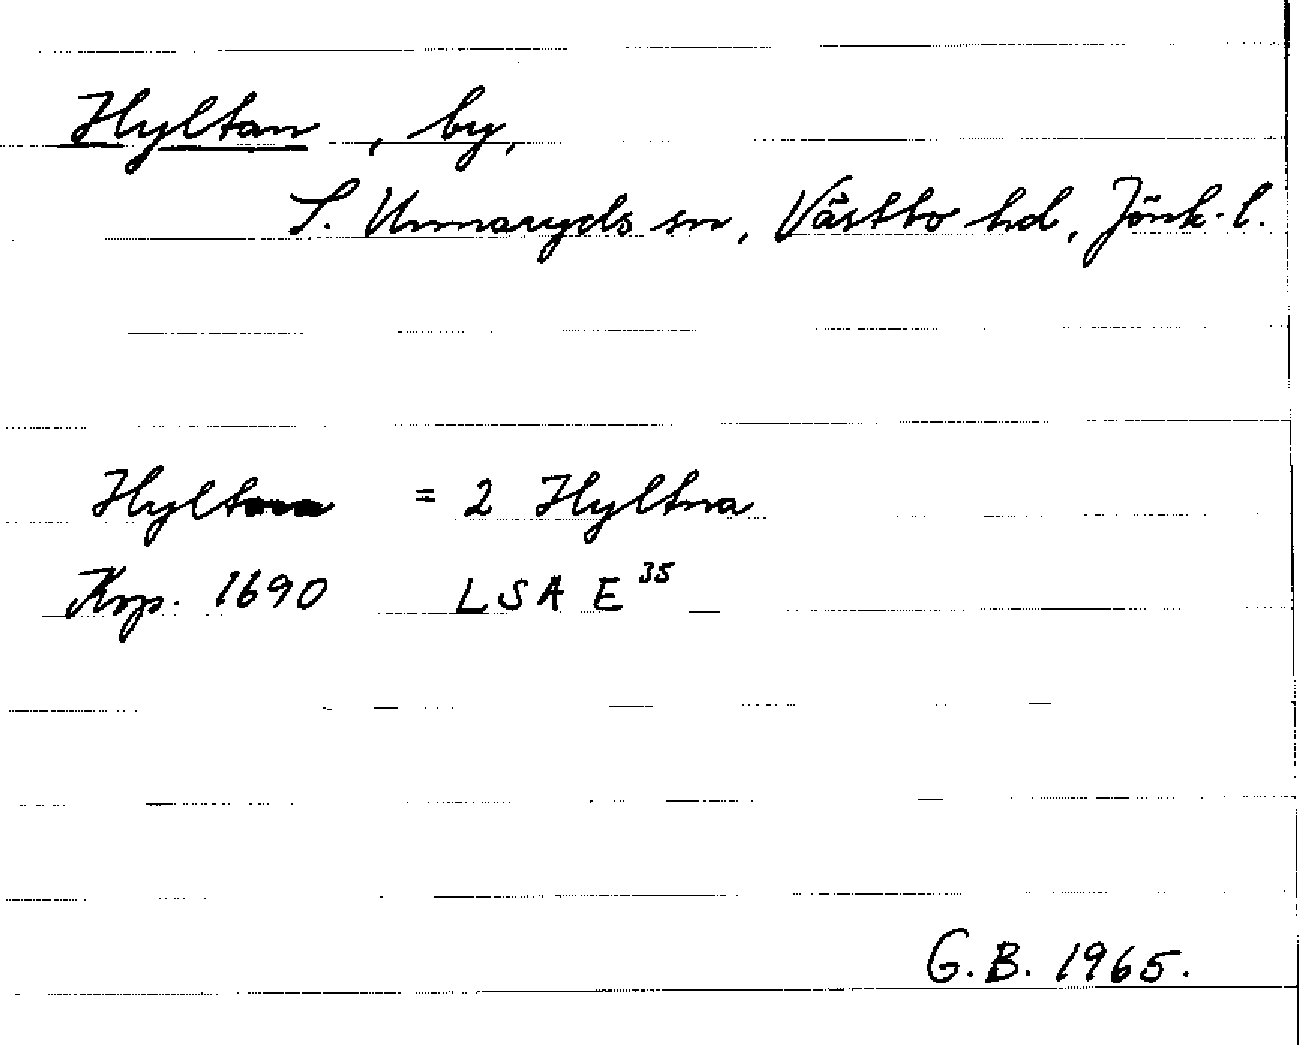 Hyltan, by,
S. Unnaryds sn, Västbo hd, Jönk. l.
= 2 Hyltna
Krp. 1690 LSA E 35
G.B. 1965.